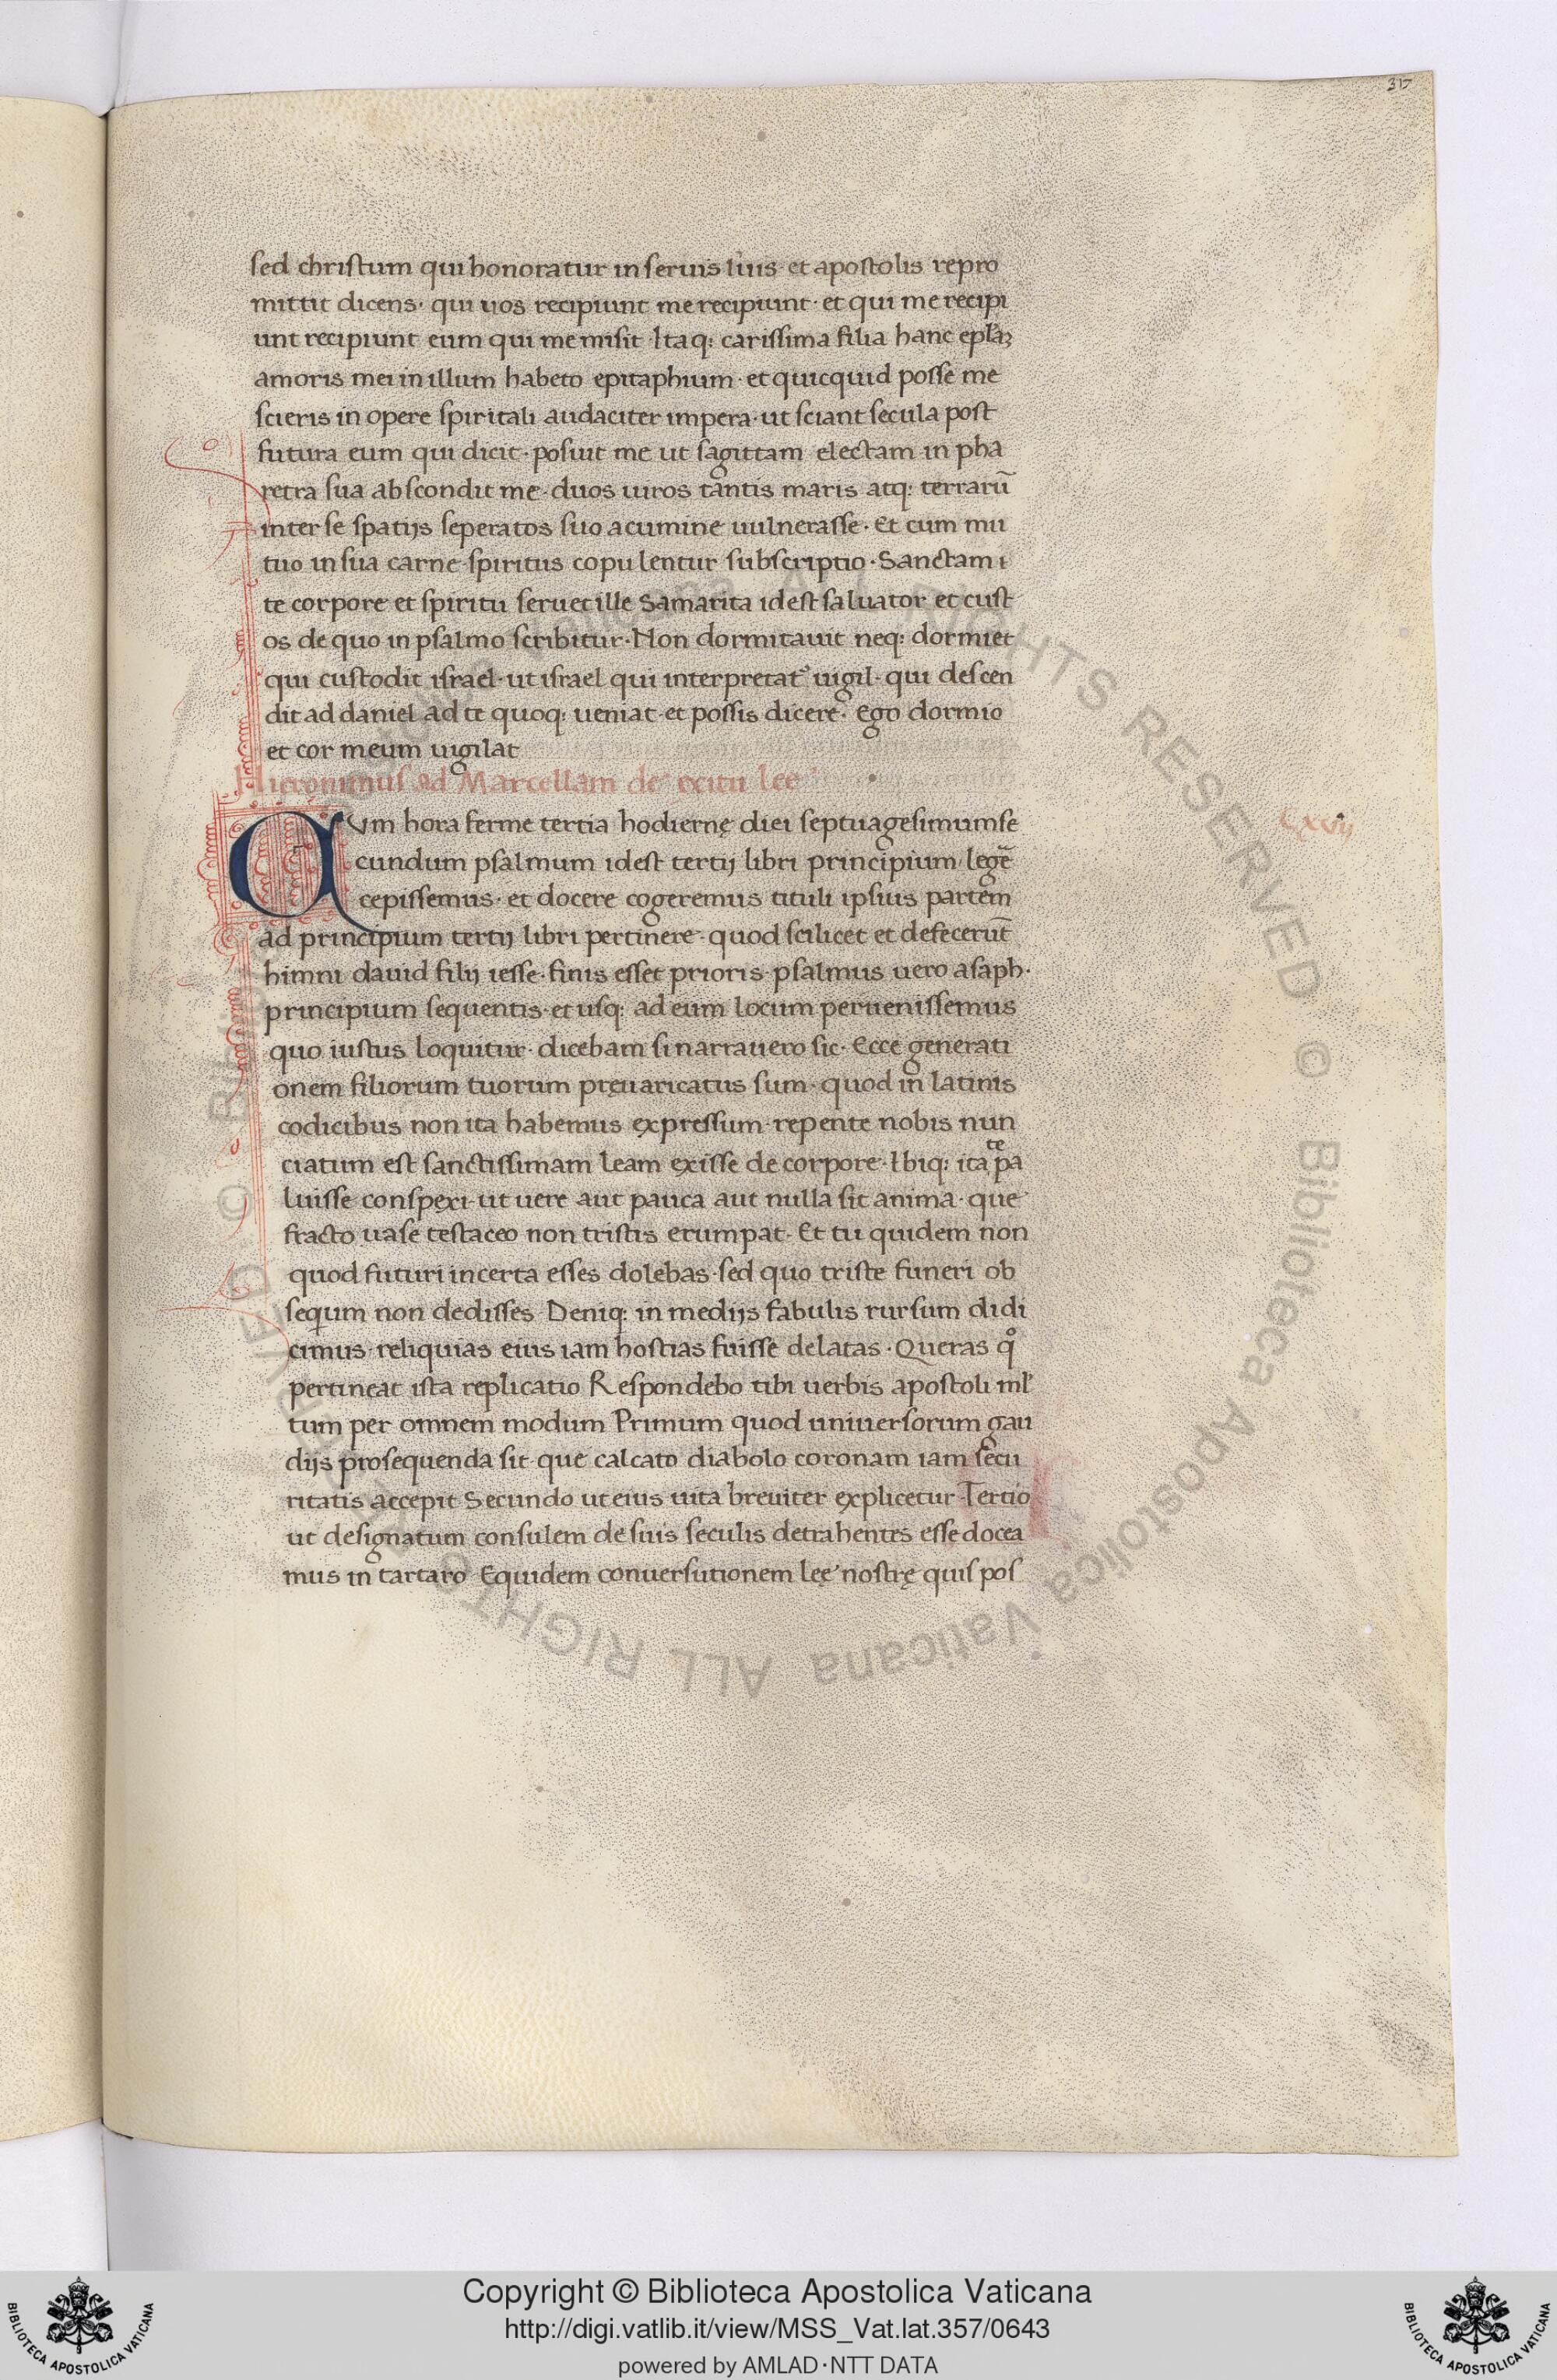 317
sed christum qui honoratur in seruis suis· et apostolis repro
mittit dicens· qui uos recipiunt me recipiunt· et qui me recipi
unt recipiunt eum qui me misit· Itaq: carissima filia hanc ep̅laꝫ
amoris mei in illum habeto epitaphium· et quicquid posse me
scieris in opere spiritali audaciter impera· ut sciant secula post
futura eum qui dicit· posuit me ut sagittam electam in pha
retra sua abscondit me· duos uiros tantis maris atq: terrarū
inter se spatijs seperatos suo acumine uulnerasse· Et cum mu
tuo in sua carne spiritus copulentur subscriptio· Sanctam i
te corpore et spiritu seruet ille Samarita id est saluator et cust
os de quo in psalmo scribitur· Non dormitauit neq: dormiet
qui custodit israel· ut israel qui interpretat᷑ uigil· qui descen
dit ad daniel ad te quoq: ueniat· et possis dicere· Ego dormio
et cor meum uigilat
Hieronimus ad Marcellam de exitu lee
CUm hora ferme tertia hodiernę diei septuagesimum se
LXVII
cundum psalmum id est tertij libri principium legē
cepissemus· et docere cogeremus tituli ipsius partem
ad principium tertij libri pertinere· quod scilicet et defecerūt
himni dauid filij iesse· finis esset prioris· psalmus uero asaph·
principium sequentis· et usq: ad eum locum peruenissemus
quo iustus loquitur· dicebam si narrauero sic· Ecce generati
onem filiorum tuorum pręuaricatus sum· quod in latinis
codicibus non ita habemus expressum· repente nobis nun
ciatum est sanctissimam leam exisse de corpore· Ibiq: ita te pa
luisse conspexi· ut uere aut pauca aut nulla sit anima· que
fracto uase testaceo non tristis erumpat· Et tu quidem non
quod futuri incerta esses dolebas· sed quo triste funeri ob
sequm non dedisses· Deniq: in medijs fabulis rursum didi
cimus· reliquias eius iam hostias fuisse delatas· Queras qͦ
pertineat ista replicatio Respondebo tibi uerbis apostoli ml'
tum per omnem modum Primum quod uniuersorum gau
dijs prosequenda sit· que calcato diabolo coronam iam secu
ritatis accepit Secundo ut eius uita breuiter explicetur· Tertio
ut designatum consulem de suis seculis detrahentes esse docea
mus in tartaro· Equidem conuersutionem leę nostrę quis pos
© Biblioteca Apostolica Vaticana ALL RIGHTS RESERVED © Biblioteca Apostolica Vaticana ALL RIGHTS RESERVED
BIBLIOTECA APOSTOLICA VATICANA
Copyright © Biblioteca Apostolica Vaticana
http://digi.vatlib.it/view/MSS_Vat.lat.357/0643
powered by AMLAD·NTT DATA
BIBLIOTECA APOSTOLICA VATICANA